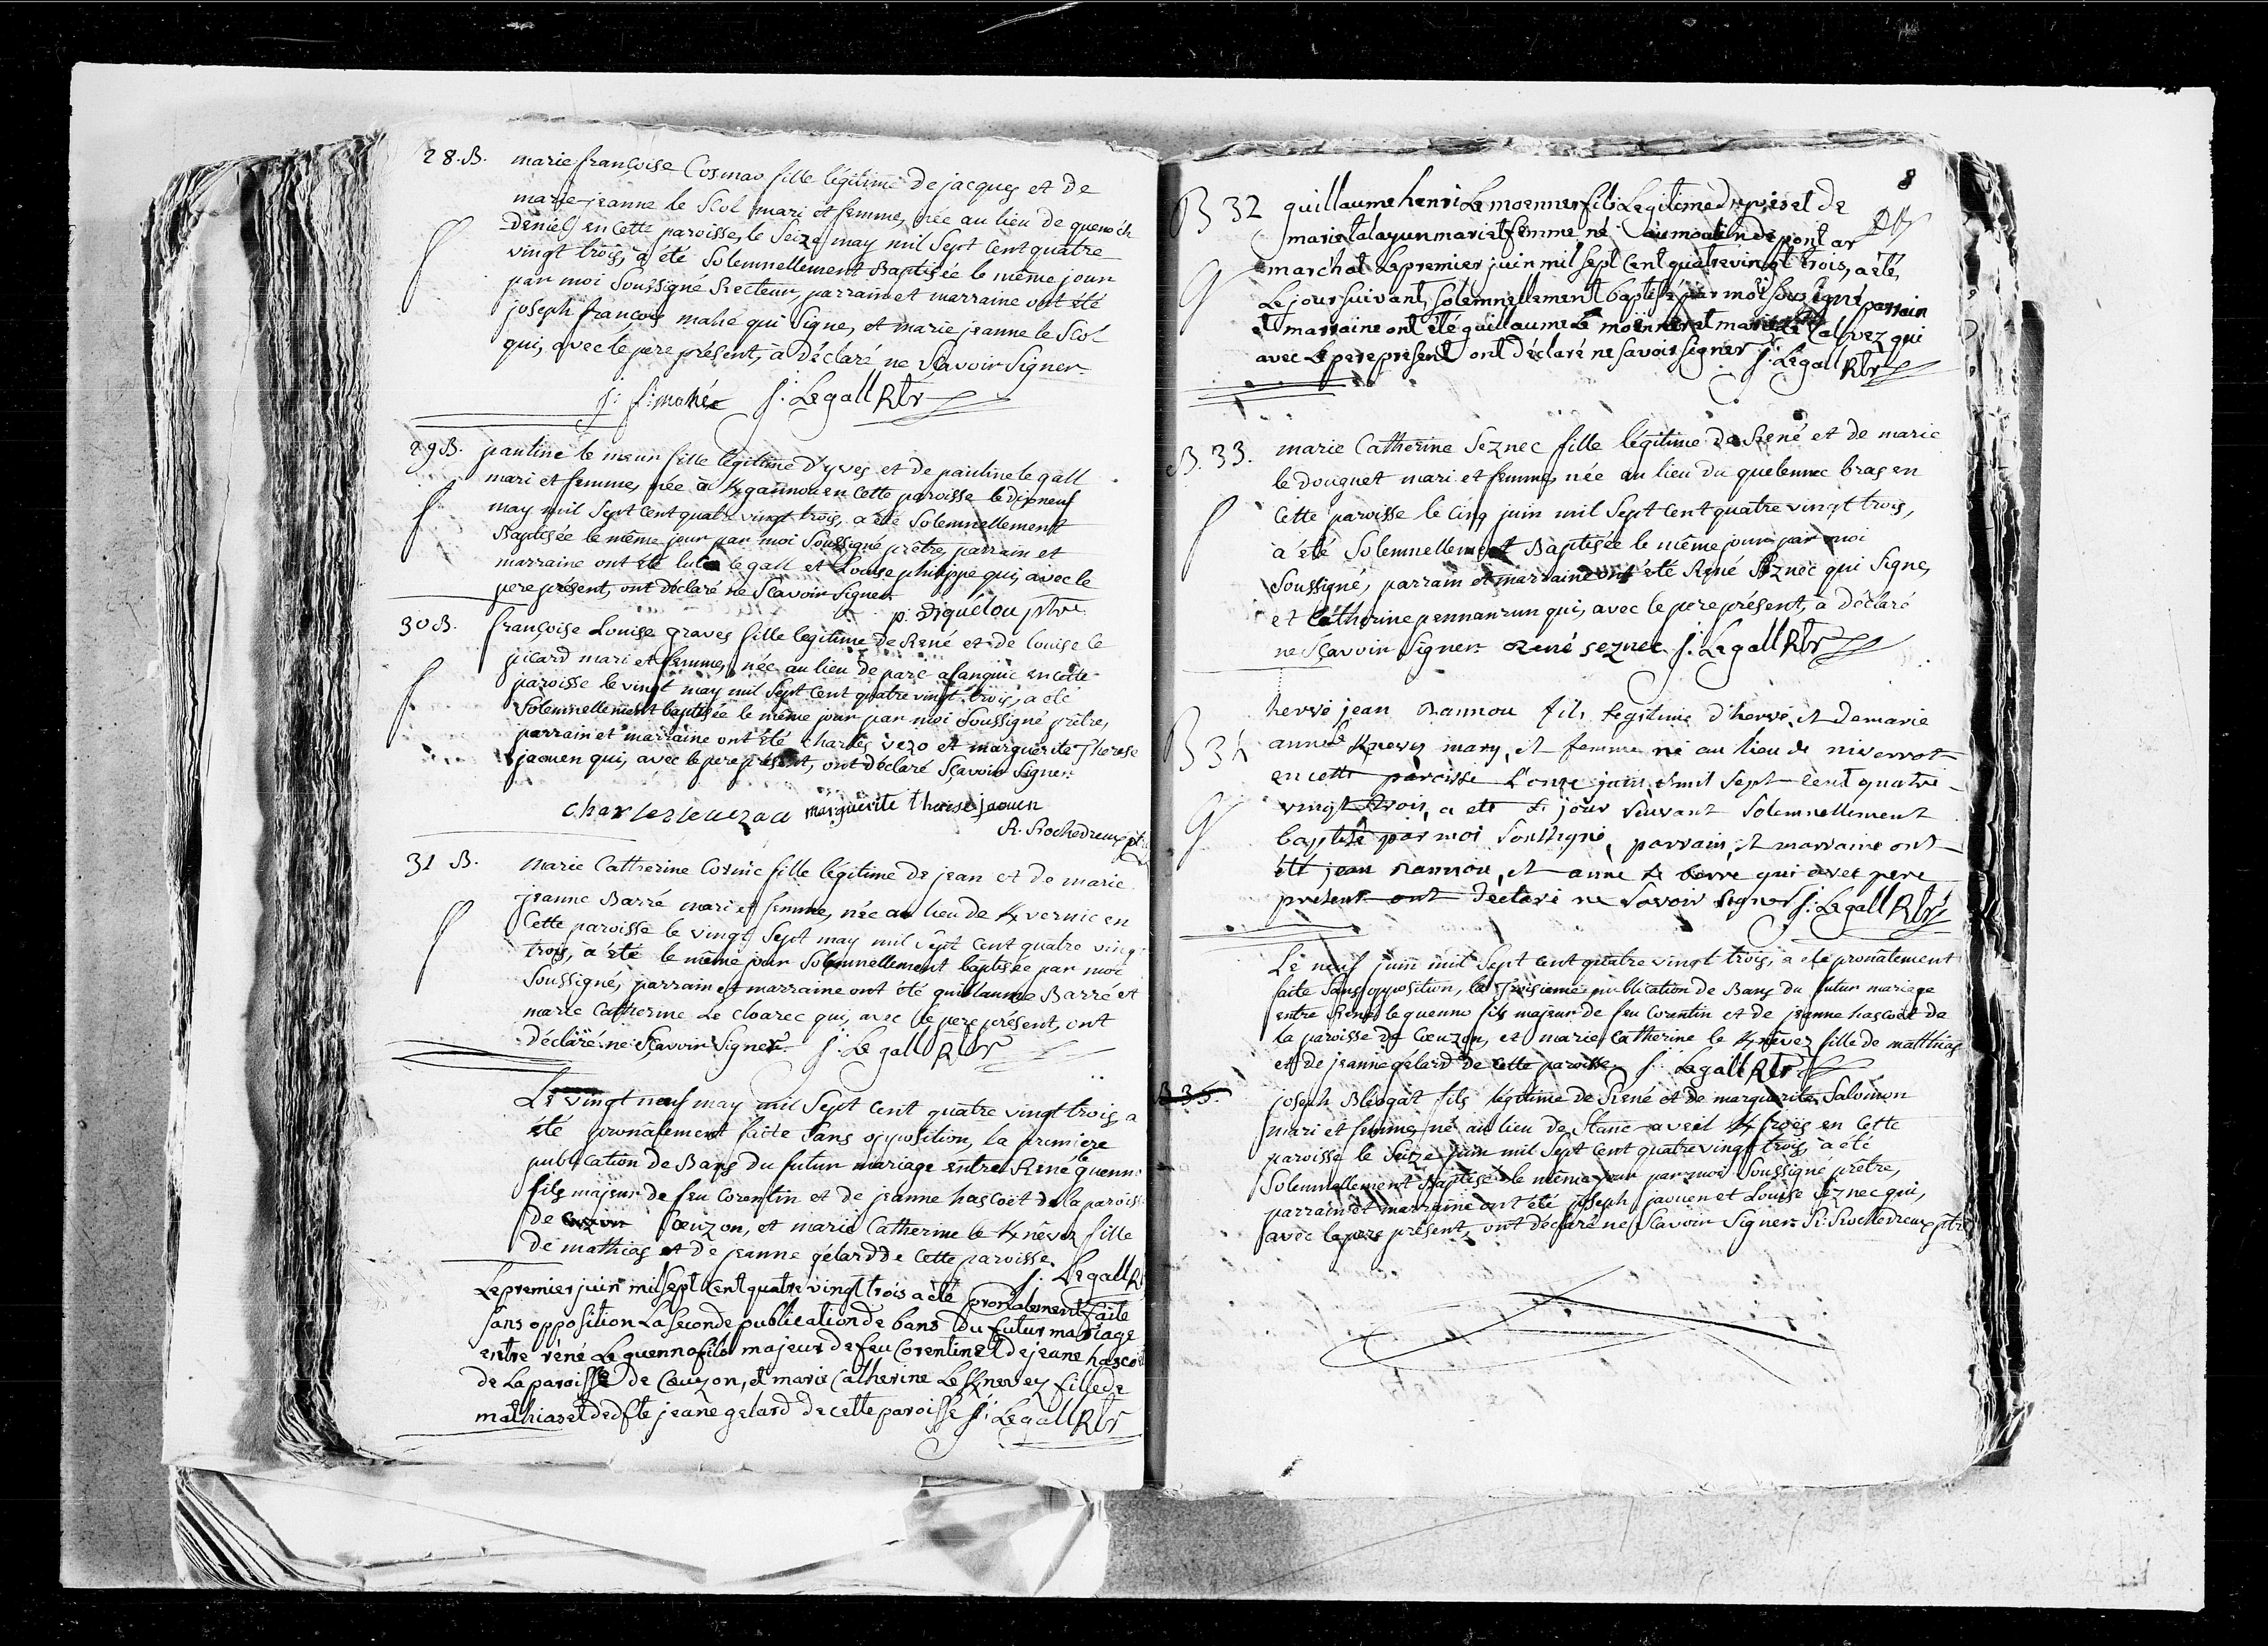 28. B. marie françoise Cosmao fille légitime de jacques et de
marie jeanne le Scol mari et femme, née au lieu de quenec'h
Deniel en cette paroisse, le Seize may mil Sept Cent quatre
vingt trois, a été Solemnellement Baptisée le même jour
par moi Soussigné Recteur, parrain et marraine ont été
joseph françois mahé qui Signe, et marie jeanne le Scol
qui, avec le pere présent, a Déclaré ne Scavoir Signer.
j: f: mahé j: Legall Rtr
29 B. pauline le meur fille légitime d'yves et de pauline le gall
mari et femme, née à Kgannou en Cette paroisse le dixneuf
may mil Sept Cent quatre vingt trois, a été Solemnellement
Baptisée le même jour par moi Soussigné prêtre, parrain et
marraine ont été le gall et Louise philippe qui, avec le
pere présent, ont déclaré ne Scavoir Signer
p. Diquelou ptre
30 B. françoise Louise graves fille legitime de René et de louise le
picard mari et femme, née au lieu de parc alanguic en cette
paroisse le vingt may mil Sept Cent quatre vingt trois, a été
Solemnellement baptisée le même jour par moi Soussigné prêtre,
parrain et marraine ont été charles vezo et marguerite Therese
jaouen qui, avec le pere présent, ont déclaré Scavoir Signer.
marguerite therese jaouen
R. Rochedreux ptre
31 B. marie Catherine Cornic fille légitime de jean et de marie
jeanne Barré mari et femme, née au lieu de Kvernic en
Cette paroisse le vingt Sept may mil Sept Cent quatre vingt
trois, a été le même jour Solemnellement baptisée par moi
Soussigné, parrain et marraine ont été guillaume Barré et
marie Catherine Le cloarec qui, avec le pere présent, ont
déclaré ne Scavoir Signer. j: Le gall Rtr
Le vingt neuf may mil Sept Cent quatre vingt trois, a
été pronâlement faite Sans opposition, la premiere
publication de Bans du futur mariage entre René le guenno
fils majeur de feu Corentin et de jeanne hascoët de la paroisse
de Cœuzon, et marie Catherine le Knévez fille
de mathias et de jeanne gélard de Cette paroisse.
j: Legall Rtr
Le premier juin mil sept Cent quatre vingt trois a été pronalement faite
sans opposition La seconde publication de bans du futur mariage
entre réné Le guenno fils majeur de feu Corentin et de jeane hascoët
de La paroisse de Cœuzon, et marie Catherine Le Knevez fille de
mathias et de jeane gelard de cette paroisse j: Legall Rtr
8
B 32 guillaume henri Le moenner fils Legitime d'yves et de
marie talayun mari et femme né au moulin de pont ar
marc'hat Le premier juin mil sept Cent quatre vingt trois, a été,
Le jour suivant, solemnellement baptisé par moi soussigné parrain
et marraine ont été guillaume Le moenner et marie Le Calvez qui
avec Le pere présent ont déclaré ne savoir signer j: Legall Rtr
B. 33. marie Catherine Seznec fille légitime de René et de marie
le douguet mari et femme, née au lieu du quelennec bras en
Cette paroisse le Cinq juin mil Sept Cent quatre vingt trois,
a été Solemnellement Baptisée le même jour par moi
Soussigné, parrain et marraine ont été René Seznec qui Signe,
et Catherine pennanrun qui, avec le pere présent, a déclaré
ne Sçavoir Signer. René seznec j: Legall Rtr
B 34 hervé jean Nannou fils legitime d'hervé, et de marie
anne Knevez mary, et femme né au lieu de niverrot
en cette paroisse L'onze juin mil Sept Cent quatre
vingt trois, a ete le jour Suivant Solemnellement
baptisé par moi Soussigné, parrain, et marraine ont
été jean Nannou, et anne le berre qui avec pere
présent ont declaré ne Savoir Signer j: Legall Rtr
Le neuf juin mil Sept Cent quatre vingt trois, a été pronâlement
faite Sans opposition, la Troisieme publication de Bans du futur mariage
entre René le guenno fils majeur de feu Corentin et de jeanne hascoët de
la paroisse de Cœuzon, et marie Catherine le Knévez fille de matthias
et de jeanne gélard de Cette paroisse. j: Legall Rtr
B 35. joseph Bleogat fils légitime de René et de marguerite Salomon
mari et femme, né au lieu de Stanc aveil Kfroës en Cette
paroisse le Seize juin mil Sept Cent quatre vingt trois, a été
Solemnellement Baptisé le même jour par moi Soussigné prêtre,
parrain et marraine ont été joseph jaouen et Louise Seznec qui,
avec le pere présent, ont déclaré ne Scavoir Signer R: Rochedreux ptre